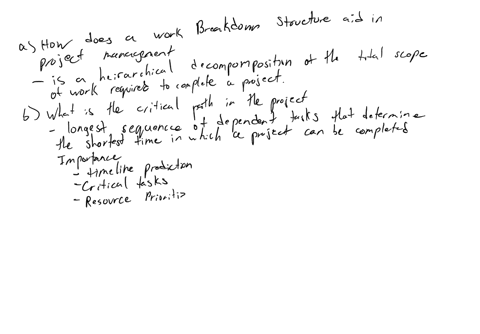 a) How does a work Breakdown Structure aid in
project managment
- is a heirarchical decompomposition of the total scope
of work required to complete a project.
b) What is the critical path in the project
- longest sequence of dependent tasks that determine
the shortest time in which a project can be completed
Importance
- timeline prediction
- Critical tasks
- Resource Prioritiz